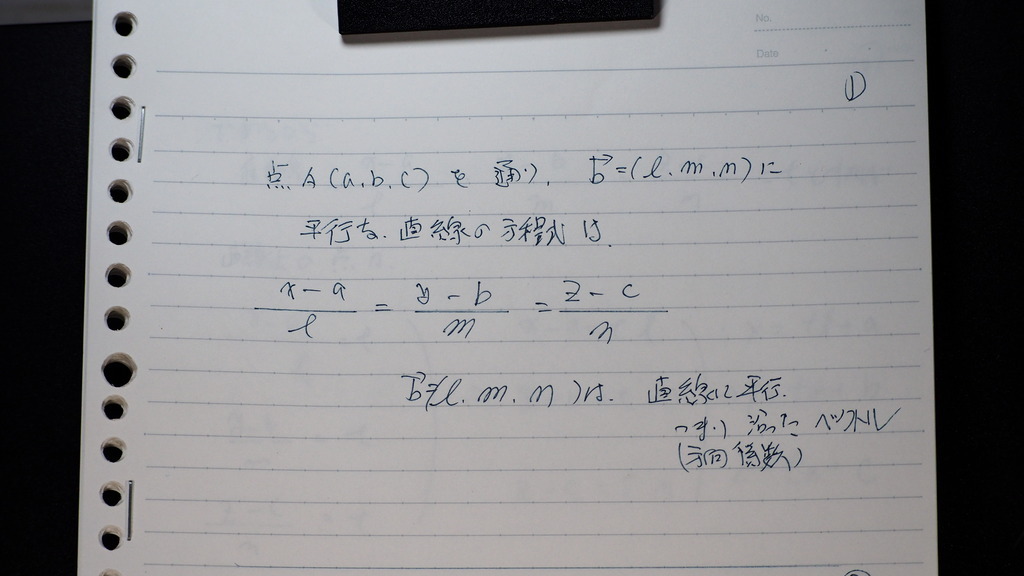 No.
Date
①
点A(a, b, c)を通り、 b⃗=(l, m, n)に
平行な、直線の方程式は、
x-a/l = y-b/m = z-c/n
b⃗=(l, m, n)は、 直線に平行、
つまり 沿った ベクトル
(方向係数)